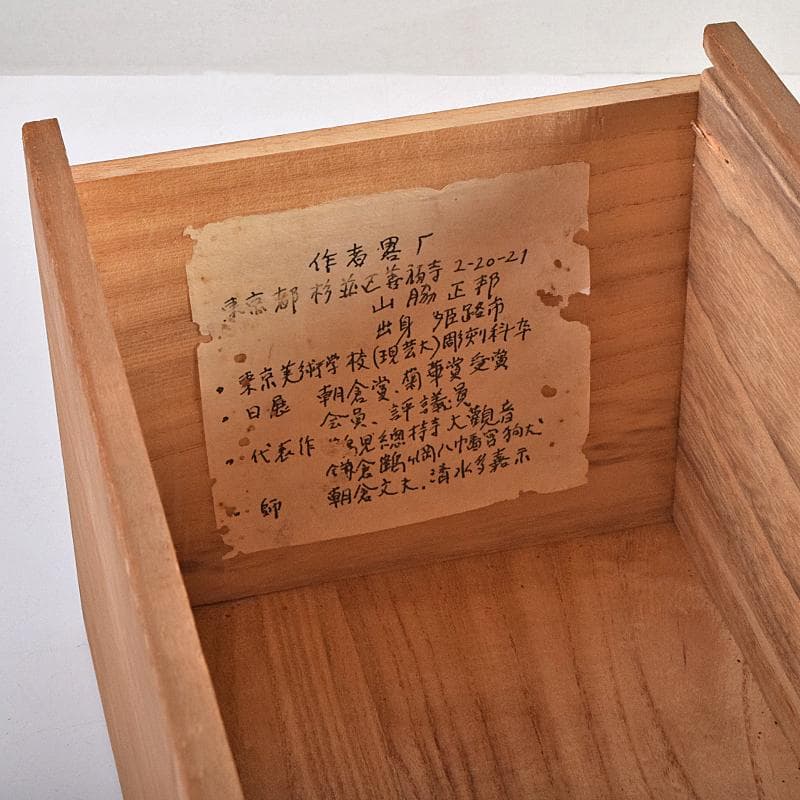 作者畧厂
東京都杉並区善福寺2-20-21
山脇正邦
出身 姫路市
・東京美術学校(現芸大)彫刻科卒
・日展 朝倉賞、菊華賞受賞
会員、評議員
・代表作 鶴見總持寺大観音
鎌倉鶴岡八幡宮狛犬
・師 朝倉文夫、清水多嘉示